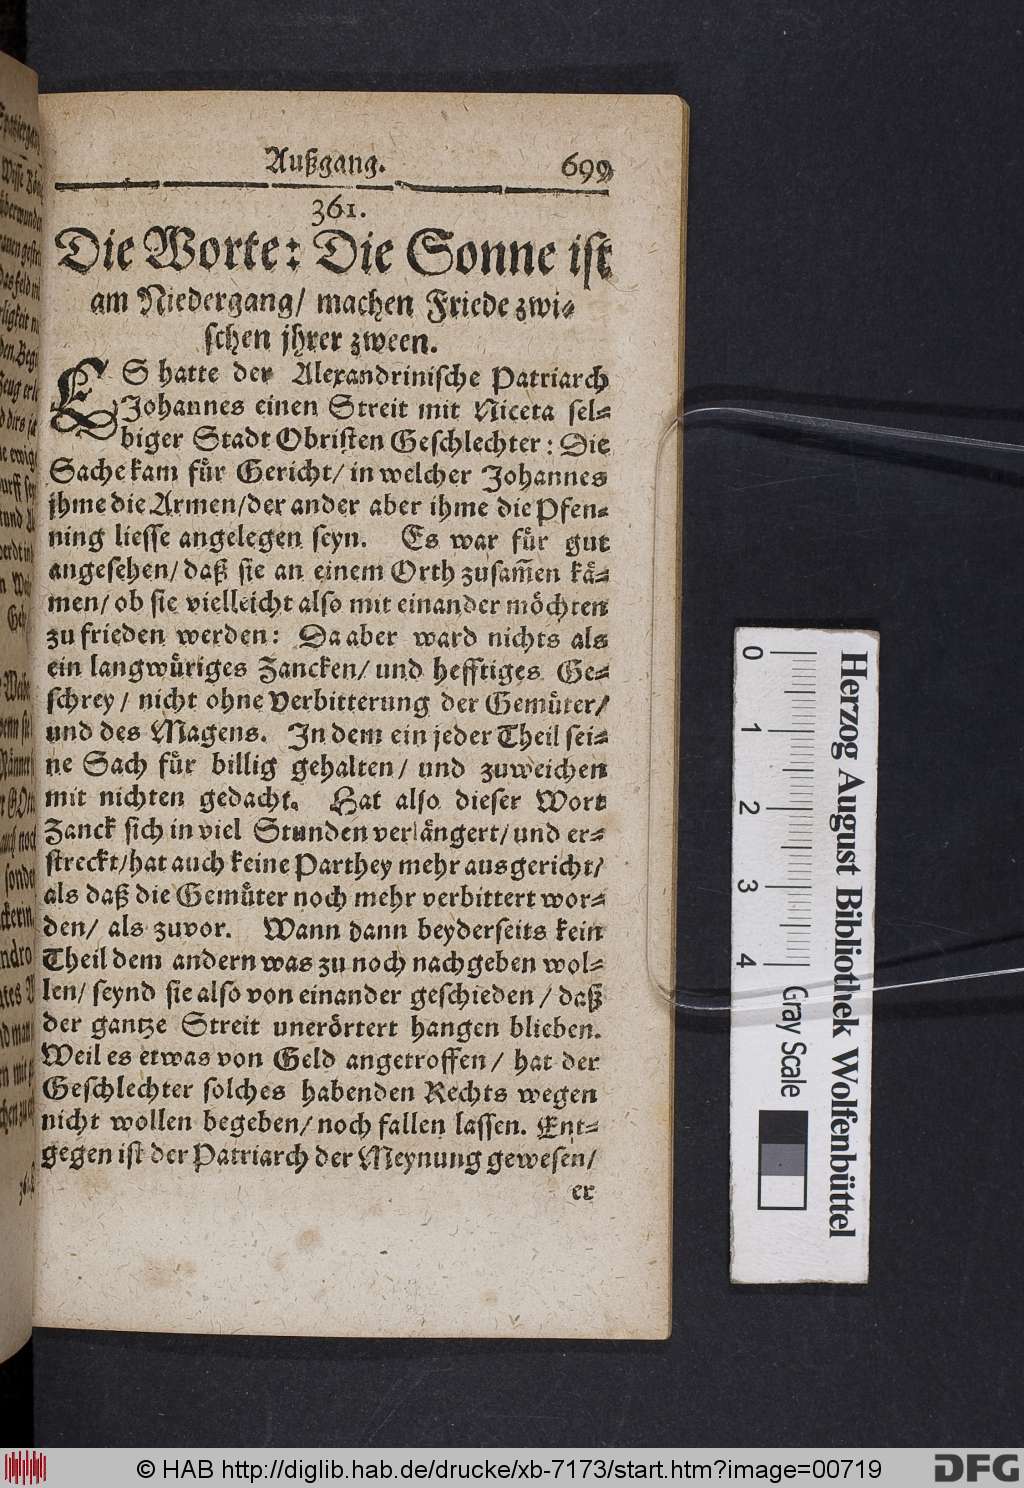 Außgang. 699
361.
Die Worte: Die Sonne ist
am Niedergang/ machen Friede zwi-
schen jhrer zween.
ES hatte der Alexandrinische Patriarch
Johannes einen Streit mit Niceta sel-
biger Stadt Obristen Geschlechter: Die
Sache kam fuͤr Gericht/ in welcher Johannes
jhme die Armen/ der ander aber ihme die Pfen-
ning liesse angelegen seyn. Es war fuͤr gut
angesehen/ daß sie an einem Orth zusam̃en kaͤ-
men/ ob sie vielleicht also mit einander moͤchten
zu frieden werden: Da aber ward nichts als
ein langwuͤriges Zancken/ und hefftiges Ge-
schrey/ nicht ohne Verbitterung der Gemuͤter/
und des Magens. In dem ein jeder Theil sei-
ne Sach fuͤr billig gehalten/ und zuweichen
mit nichten gedacht. Hat also dieser Wort
Zanck sich in viel Stunden verlaͤngert/ und er-
streckt/ hat auch keine Parthey mehr ausgericht/
als daß die Gemuͤter noch mehr verbittert wor-
den/ als zuvor. Wann dann beyderseits kein
Theil dem andern was zu noch nachgeben wol-
len/ seynd sie also von einander geschieden/ daß
der gantze Streit unerörtert hangen blieben.
Weil es etwas von Geld angetroffen/ hat der
Geschlechter solches habenden Rechts wegen
nicht wollen begeben/ noch fallen lassen. Ent-
gegen ist der Patriarch der Meynung gewesen/
er
0 1 2 3 4 Gray Scale
Herzog August Bibliothek Wolfenbüttel
© HAB http://diglib.hab.de/drucke/xb-7173/start.htm?image=00719
DFG